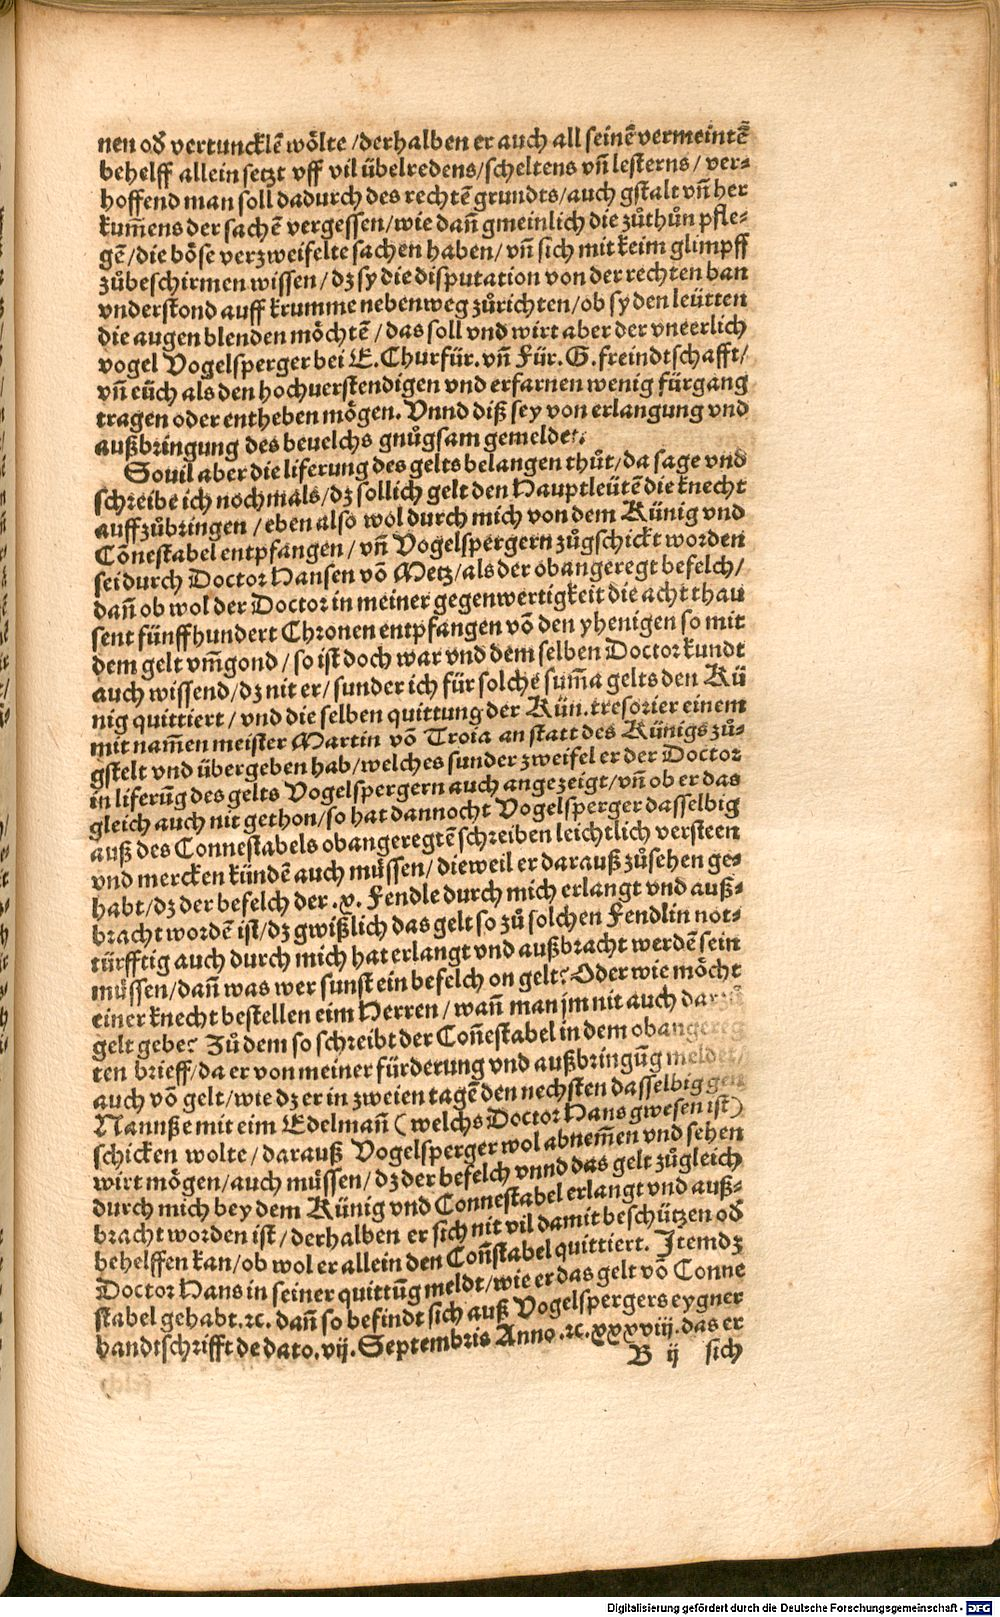 nen oď vertuncklē wölte /derhalben er auch all seinē vermeintē
behelff allein setzt vff vil übelredens/scheltens vñ lesterns/ ver⸗
hoffend man soll dadurch des rechtē grundts/auch gstalt vñ her
kum̃ens der sachē vergessen/wie dañ gmeinlich die zůthůn pfle⸗
gē/die böse verzweifelte sachen haben/vñ sich mit keim glimpff
zůbeschirmen wissen/dz sy die disputation von der rechten ban
vnderstond auff krumme nebenweg zůrichten/ob sy den leütten
die augen blenden möchtē /das soll vnd wirt aber der vneerlich
vogel Vogelsperger bei E. Churfür. vñ Für. G. freindtschafft/
vñ eüch als den hochuerstendigen vnd erfarnen wenig fürgang
tragen oder entheben mögen. Vnnd diß sey von erlangung vnd
außbringung des beuelchs gnůgsam gemeldet.
Souil aber die liferung des gelts belangen thůt/da sage vnd
schreibe ich nochmals/dz sollich gelt den Hauptleütē die knecht
auffzůbringen /eben also wol durch mich von dem Künig vnd
Cōnestabel entpfangen/vñ Vogelspergern zůgschickt worden
sei durch Doctor Hansen vō Metz/als der obangeregt befelch/
dañ ob wol der Doctor in meiner gegenwertigkeit die acht thau
sent fünffhundert Chronen entpfangen vō den yhenigen so mit
dem gelt vm̃gond /so ist doch war vnd dem selben Doctor kundt
auch wissend/dz nit er/sunder ich für solche sum̃a gelts den Kü
nig quittiert/vnd die selben quittung der Kün. tresorier einem
mit nam̃en meister Martin vō Troia an statt des Künigs zů⸗
gstelt vnd übergeben hab/welches sunder zweifel er der Doctor
in liferūg des gelts Vogelspergern auch angezeigt/vñ ob er das
gleich auch nit gethon/so hat dannocht Vogelsperger dasselbig
auß des Connestabels obangeregtē schreiben leichtlich versteen
vnd mercken kündē auch müssen/dieweil er darauß zůsehen ge⸗
habt/dz der befelch der .x. Fendle durch mich erlangt vnd auß⸗
bracht wordē ist/dz gwißlich das gelt so zů solchen Fendlin not⸗
türfftig auch durch mich hat erlangt vnd außbracht werdē sein
müssen/dañ was wer sunst ein befelch on gelt? Oder wie möcht
einer knecht bestellen eim Herren/wañ man jm nit auch darzů
gelt gebe? Zů dem so schreibt der Coñestabel in dem obangereg
ten brieff/da er von meiner fürderung vnd außbringūg meldet/
auch vō gelt/wie dz er in zweien tagē den nechsten dasselbig gen
Nannße mit eim Edelmañ (welchs Doctor Hans gwesen ist)
schicken wolte/darauß Vogelsperger wol abnem̃en vnd sehen
wirt mögen/auch müssen/dz der befelch vnnd das gelt zůgleich
durch mich bey dem Künig vnd Connestabel erlangt vnd auß⸗
bracht worden ist/derhalben er sich nit vil damit beschützen oď
behelffen kan/ob wol er allein den Coñstabel quittiert. Jtem dz
Doctor Hans in seiner quittūg meldt/wie er das gelt vō Conne
stabel gehabt.ꝛc. dañ so befindt sich auß Vogelspergers eygner
handtschrifft de dato. vij. Septembris Anno .ꝛc. xxxviij. das er
B ij sich
Digitalisierung gefördert durch die Deutsche Forschungsgemeinschaft - DFG